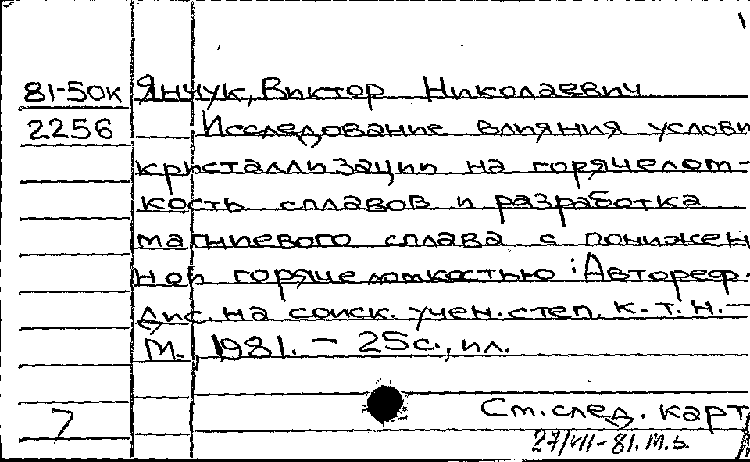 1
81-50К Янчук, Виктор Николаевич
2256 Исследование влияния услови
кристаллизации на горячелом-
кость сплавов и разработка
магниевого сплава с понижен
ной горячеломкостью: Автореф.
дис. на соиск. учен. степ. к.т.н. -
М., 1981. - 25с., ил.
7 См. след. карт
27/VII-81. М.Б.